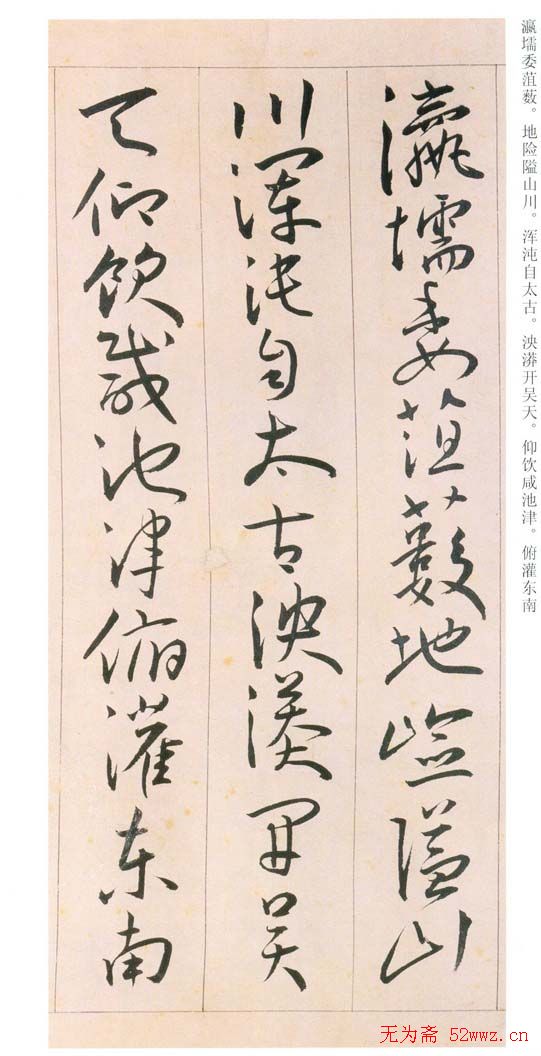 瀛壖委菹薮。地险隘山川。浑沌自太古。泱漭开吴天。仰饮咸池津。俯灌东南
瀛壖委菹藪地嶮隘山
川渾沌自太古泱漭開吳
天仰飲咸池津俯灌東南
无为斋 52wwz.cn